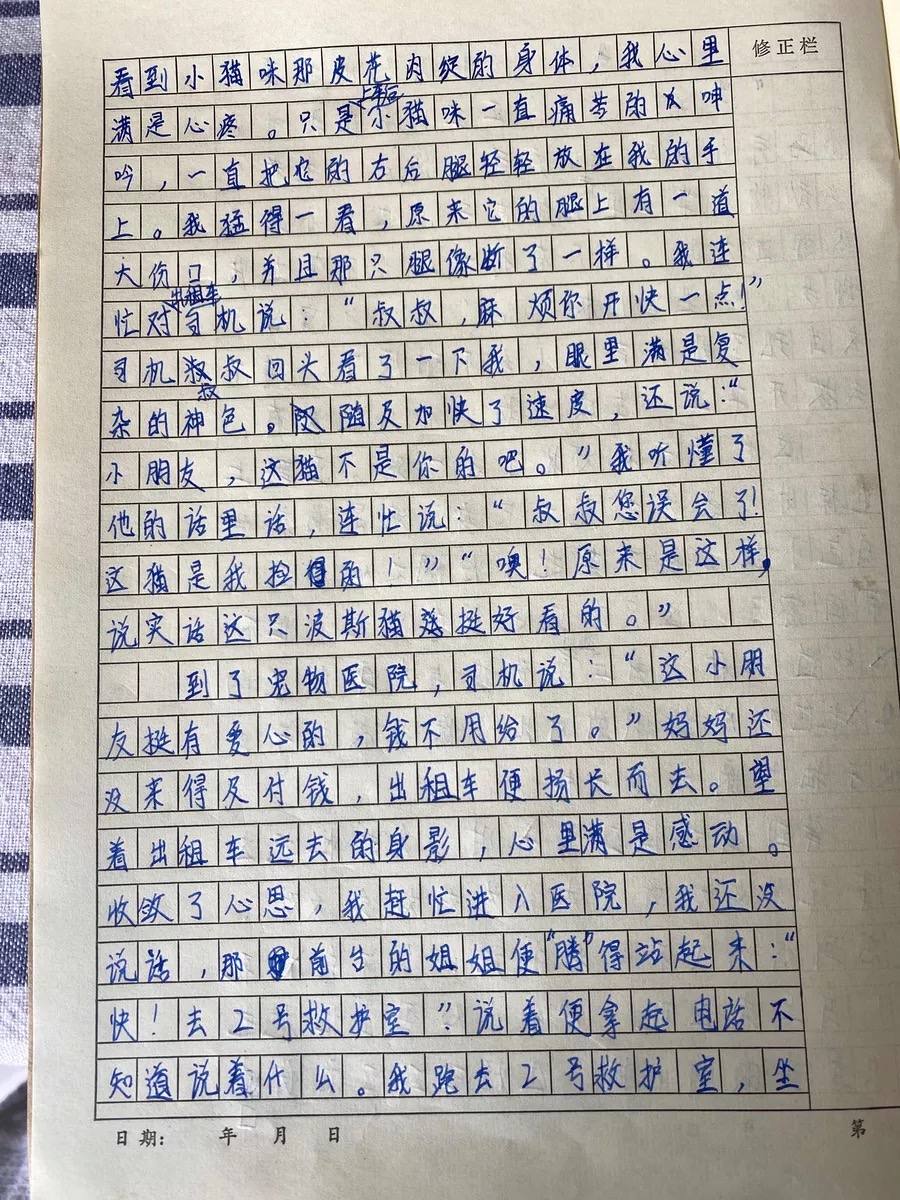 修正栏
看到小猫咪那皮花肉绽的身体，我心里
满是心疼。只是小猫咪一直痛苦的呻
吟，一直把它的右后腿轻轻放在我的手
上。我猛得一看，原来它的腿上有一道
大伤口，并且那只腿像断了一样。我连
出租车
忙对司机说：“叔叔，麻烦你开快一点！”
司机叔叔回头看了一下我，眼里满是复
杂的神色。随及加快了速度，还说：“
小朋友，这猫不是你的吧。”我听懂了
他的话里话，连忙说：“叔叔您误会了！
这猫是我捡的！”“噢！原来是这样，
说实话这只波斯猫挺好看的。”
到了宠物医院，司机说：“这小朋
友挺有爱心的，钱不用给了。”妈妈还
没来得及付钱，出租车便扬长而去。望
着出租车远去的身影，心里满是感动。
收敛了心思，我赶忙进入医院，我还没
说话，那前台的姐姐便“腾”得站起来：“
快！去2号救护室”。说着便拿起电话不
知道说着什么。我跑去2号救护室，坐
日期： 年 月 日
第